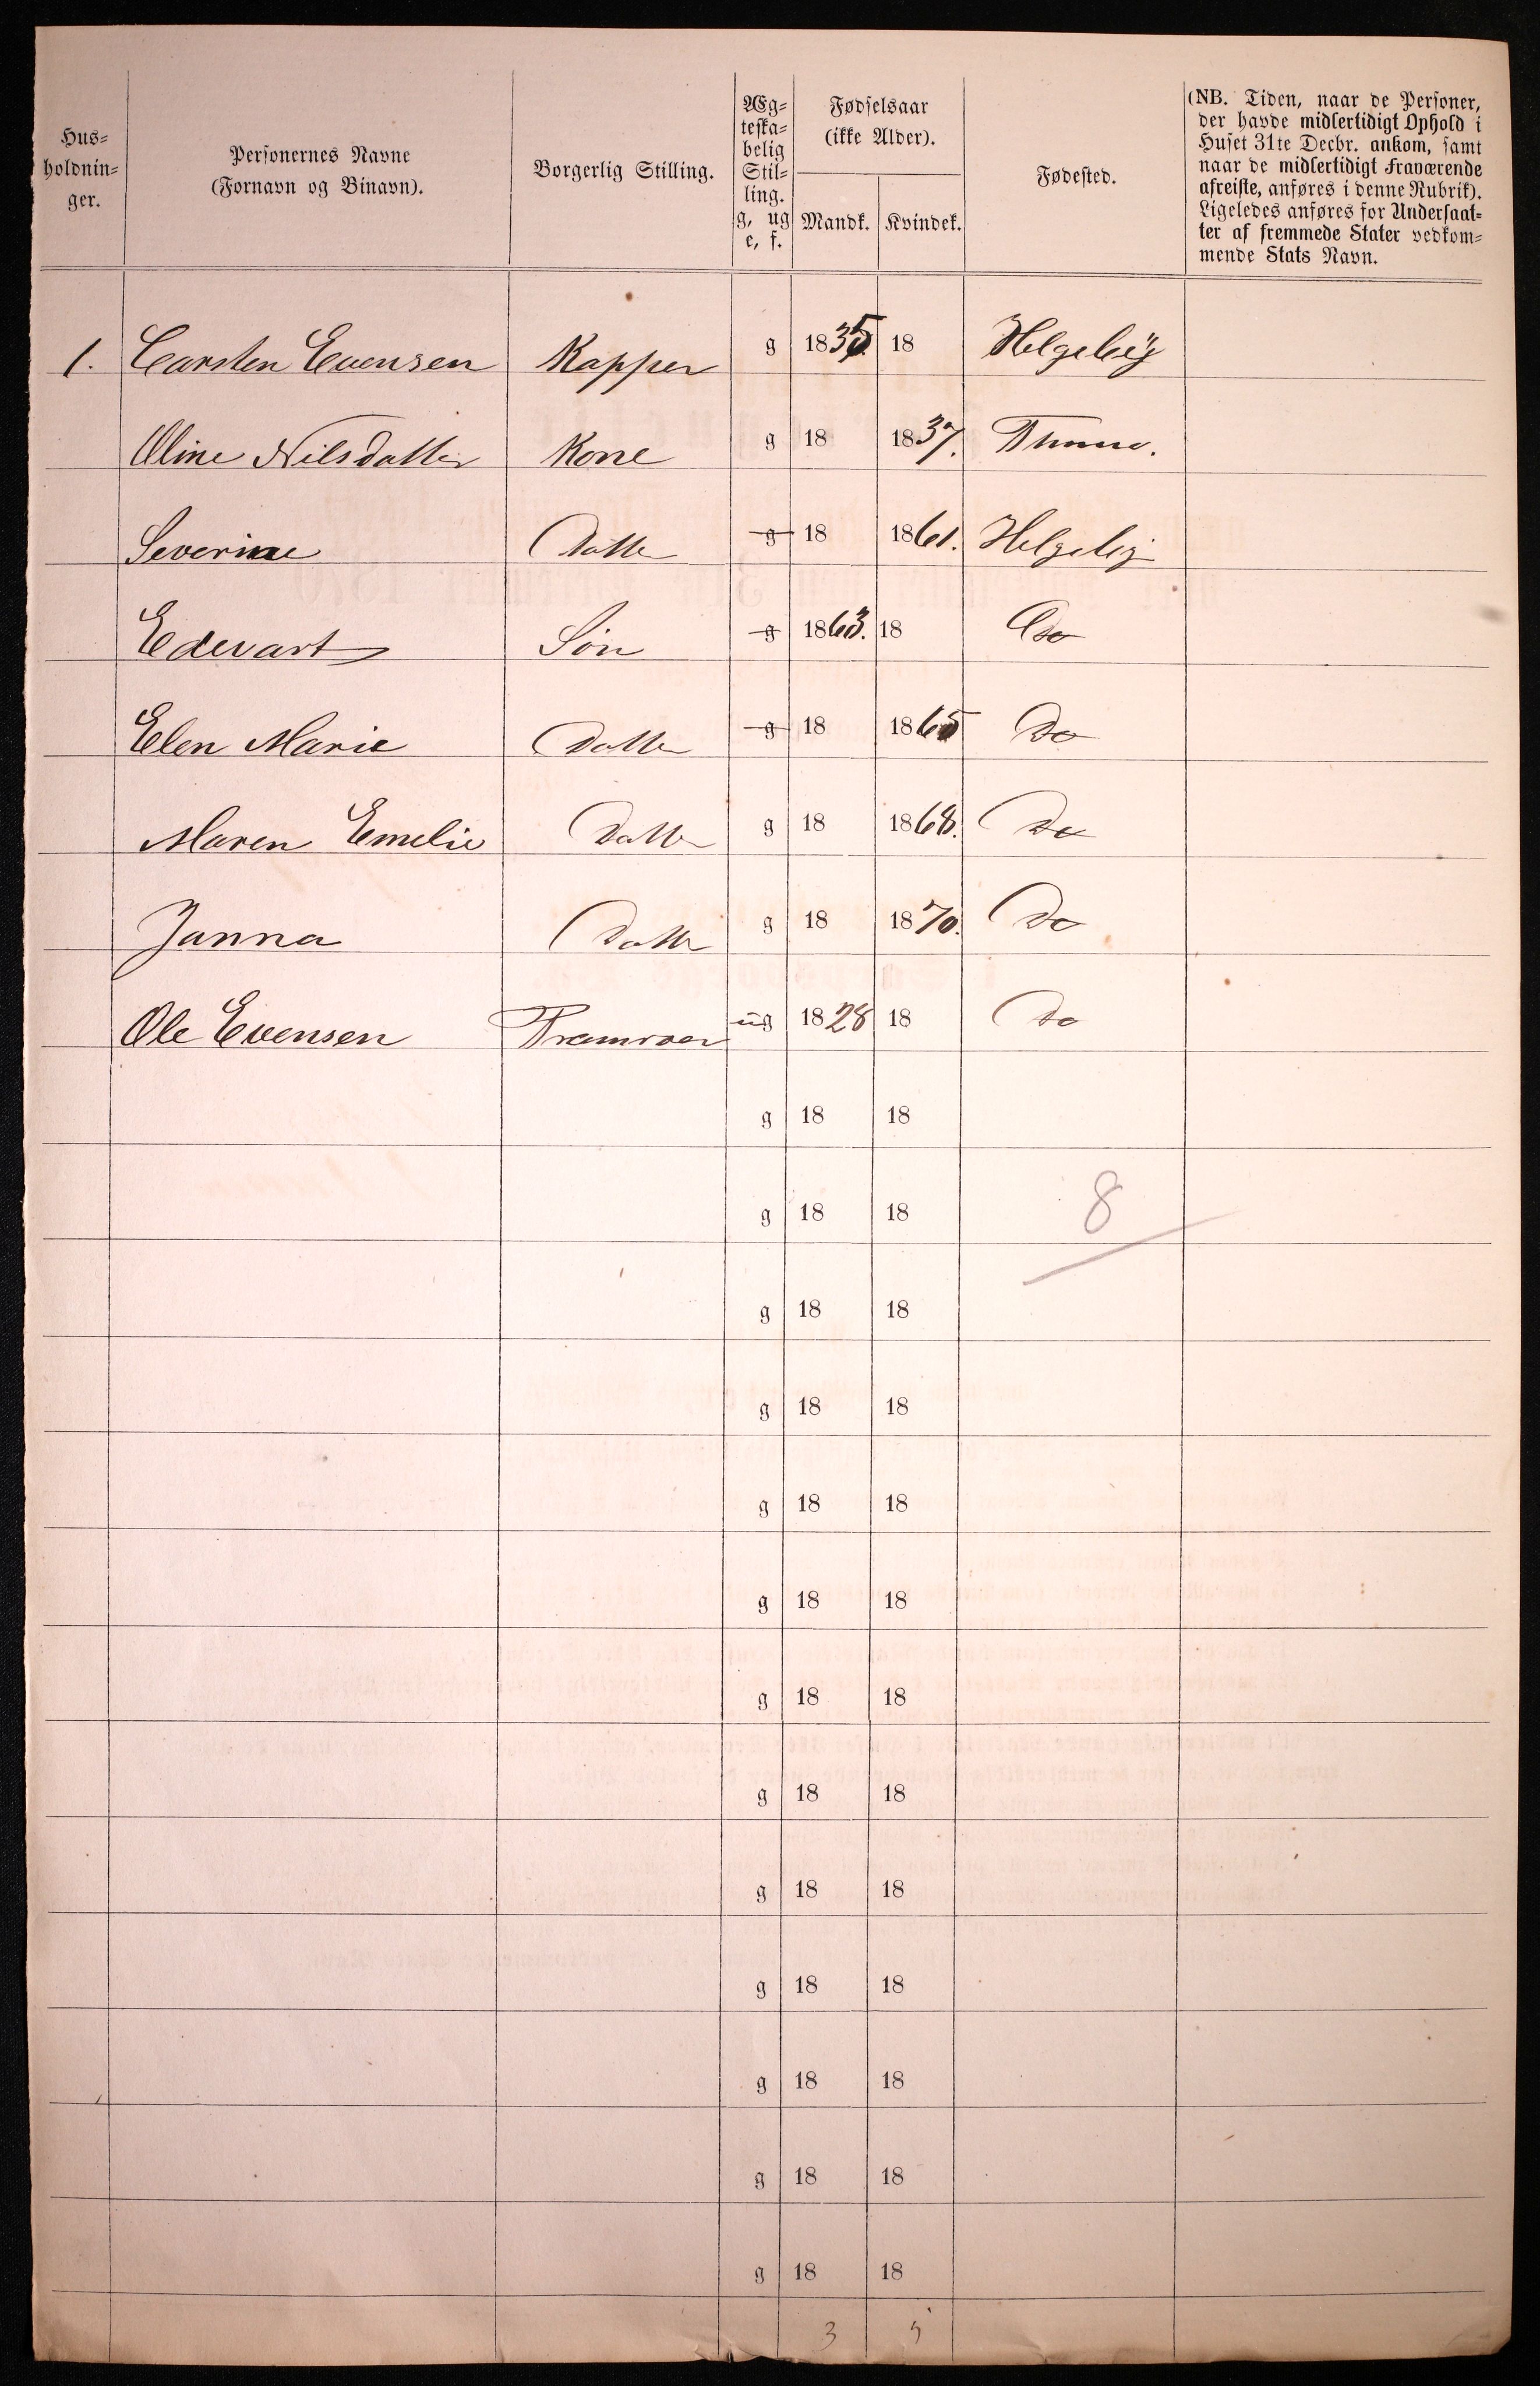 Hus=
holdnin=
ger.
Personernes Navne
(Fornavn og Binavn).
Borgerlig Stilling.
Æg=
teska=
belig
Stil=
ling.
g, ug
e, f.
Fødselsaar
(ikke Alder).
Mandk. Kvindek.
Fødested.
(NB. Tiden, naar de Personer,
der havde midlertidigt Ophold i
Huset 31te Decbr. ankom, samt
naar de midlertidigt Fraværende
afreiste, anføres i denne Rubrik).
Ligeledes anføres for Undersaat=
ter af fremmede Stater vedkom=
mende Stats Navn.
1. Carsten Evensen Kapper g 1835 18
Oline Nilsdatter Kone g 18 1837. Thune.
Severine Datter g 18 1861.
Edevart Søn g 1863. 18 Do
Elen Marie Datter g 18 1865 Do
Maren Emelie Datter g 18 1868. Do
Janna Datter g 18 1870. Do
Ole Evensen ug 1828 18 Do
g 18 18
g 18 18 8
g 18 18
g 18 18
g 18 18
g 18 18
g 18 18
g 18 18
g 18 18
g 18 18
g 18 18
g 18 18
g 18 18
3 5